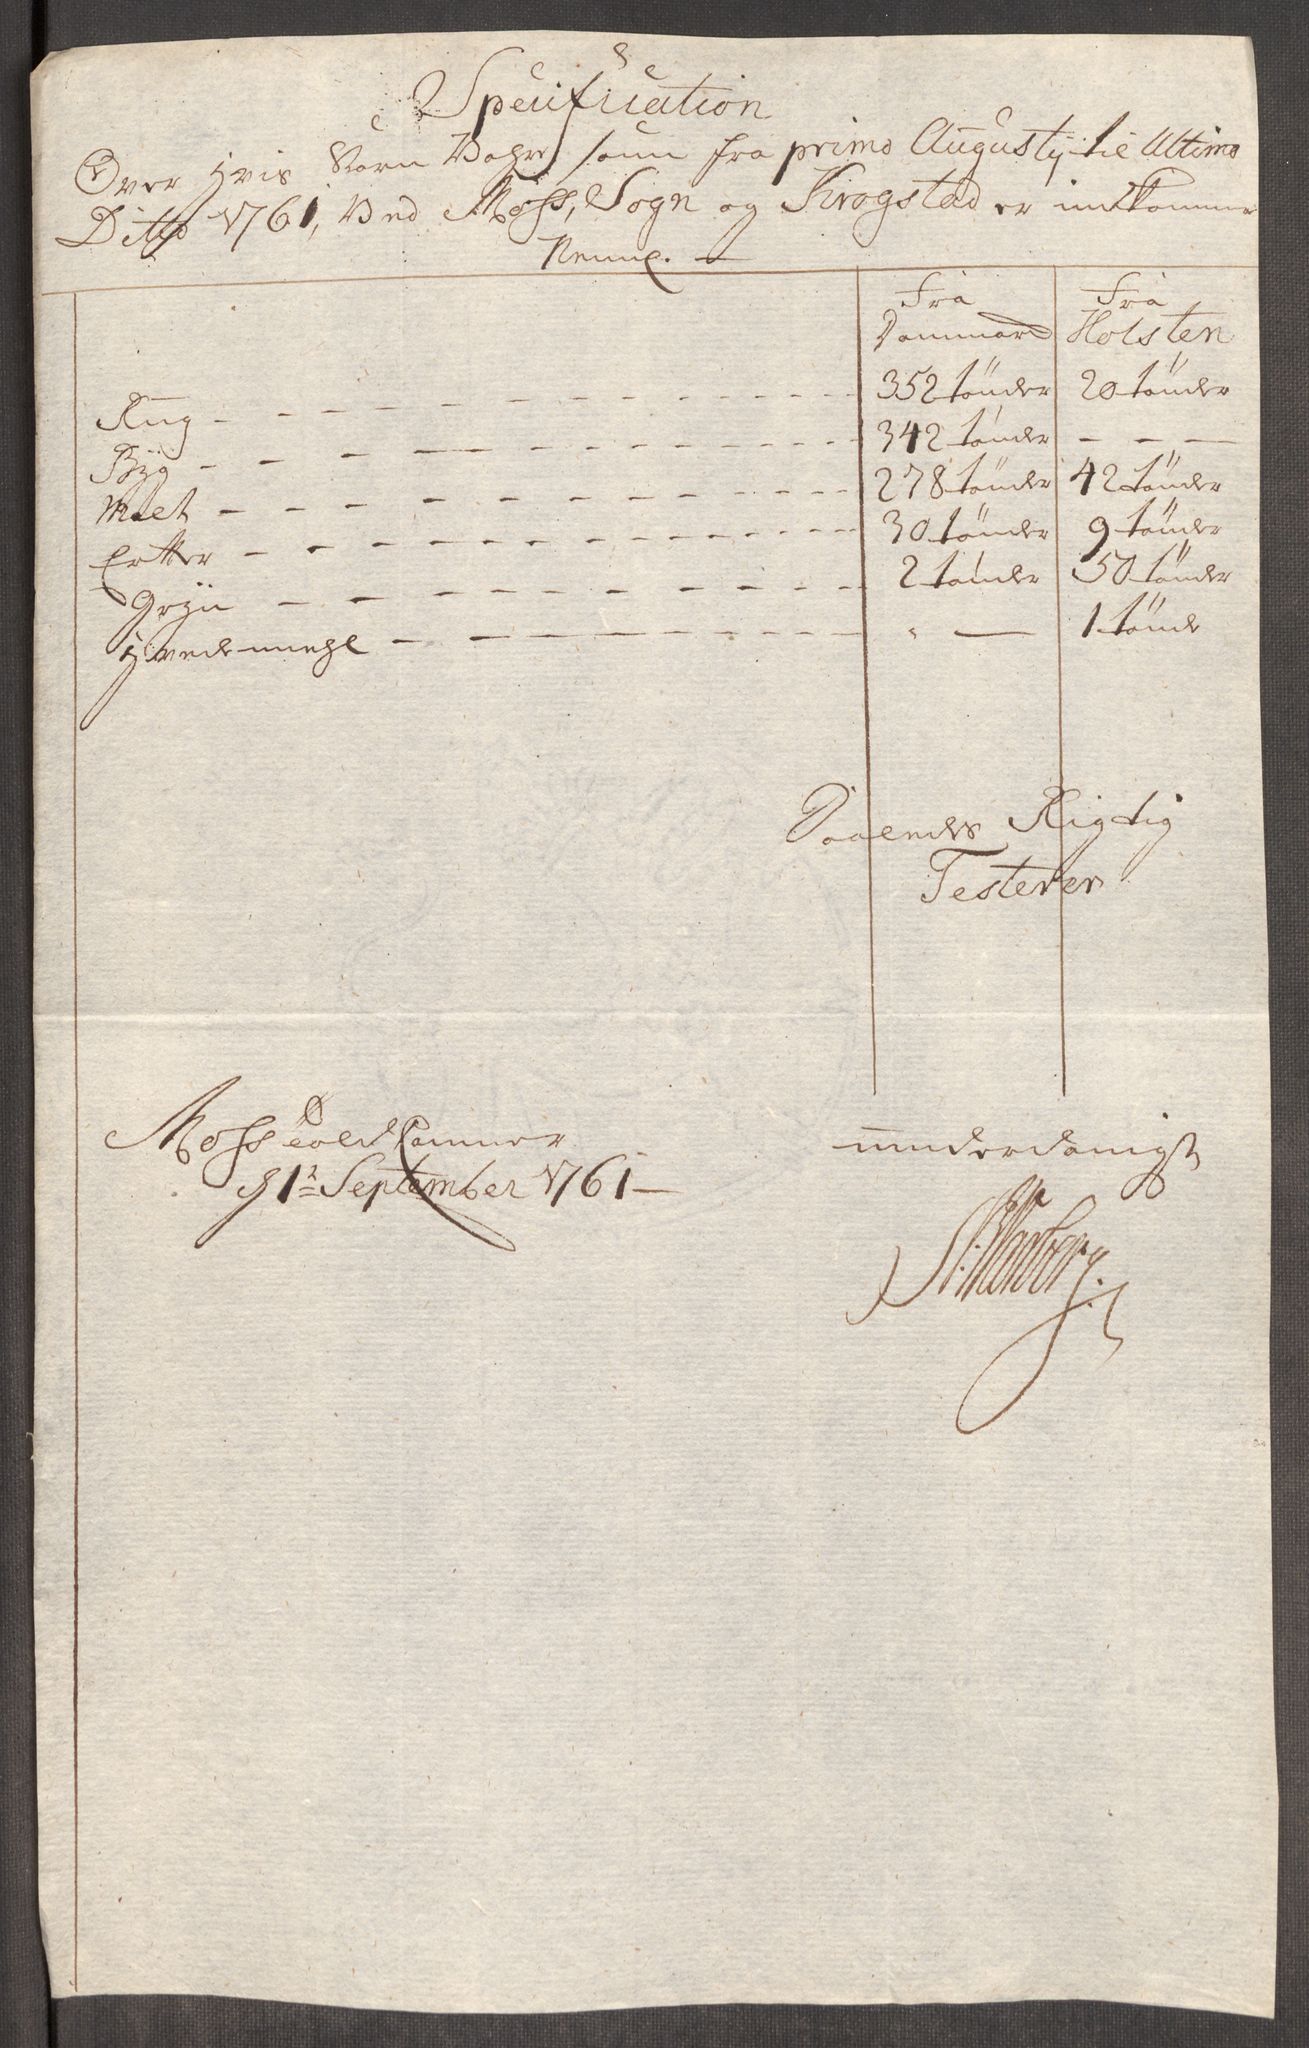 Specification
Over hvis Korn Vahre som fra primo Augustij til Ultimo
Ditto 1761, Ved Moss, Sogn og Krogstad er indkommen
Neml. —
Fra Danmark Fra Holsten
Rug 352 tönder 20 tönder
Byg 342 tönder — — —
Malt 278 tönder 42 tönder
Ertter 30 tönder 9 tönder
Gryn 2 tönder 50 tönder
Hvedemeehl " — 1 tönde
Saaledes Rigtig
Testerer
Moss Told Cammer
d 1t September 1761 —
underdanigst